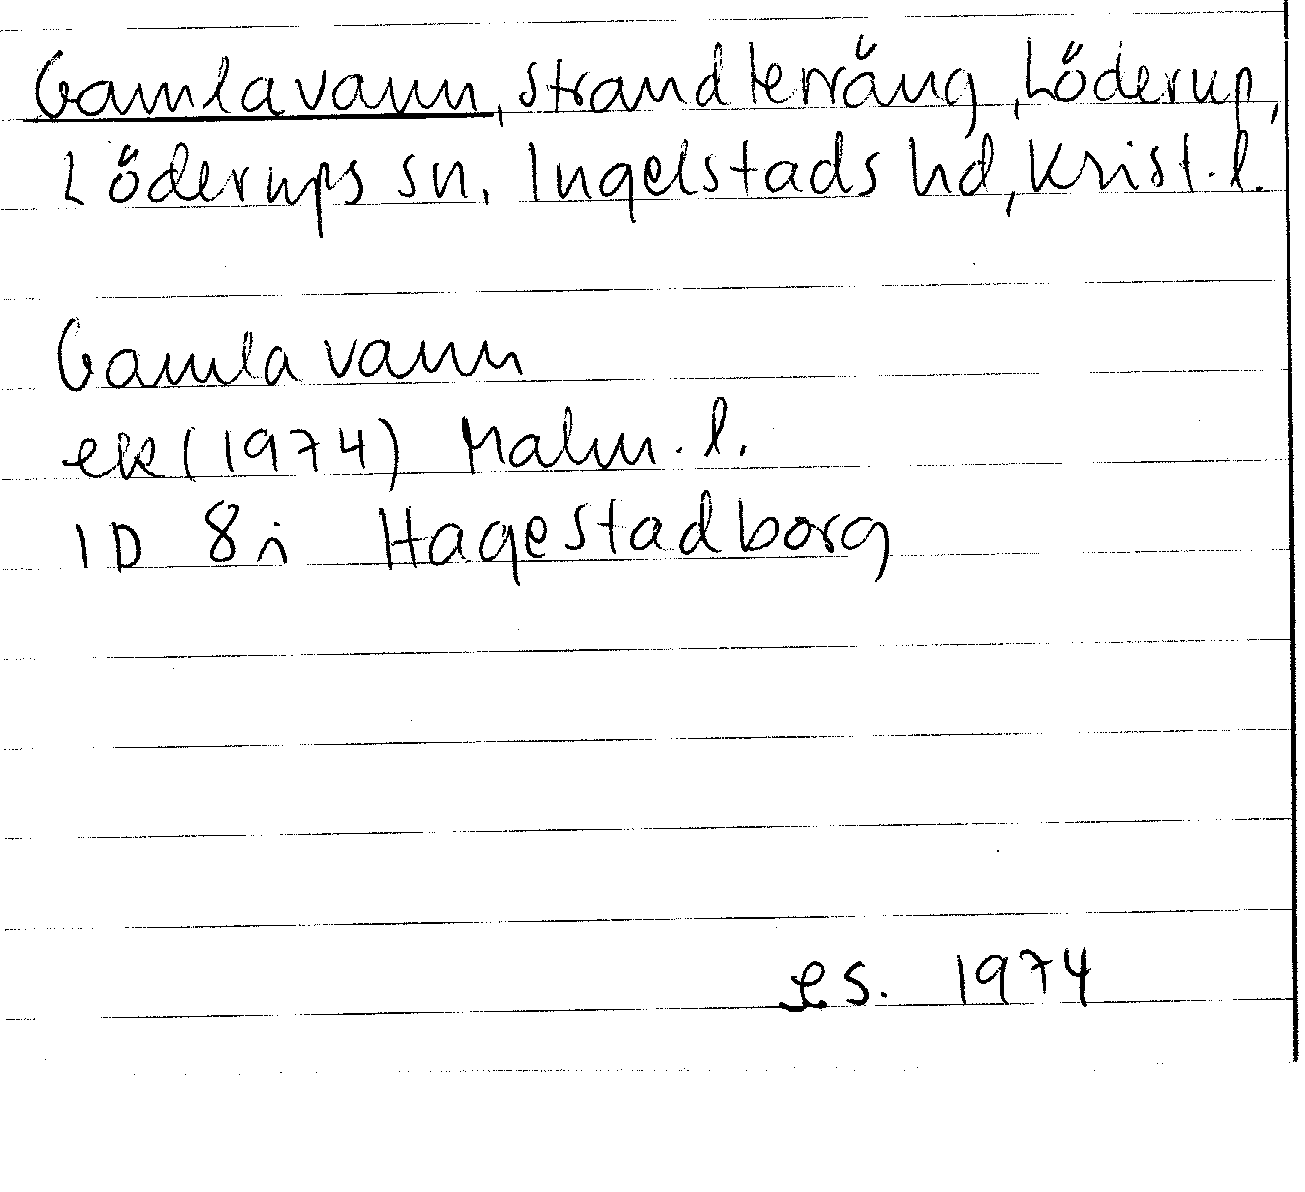 Gamlavann, strandterräng, Löderup,
Löderups sn. Ingelstads hd, Krist. l.
Gamla vann
ek (1974) Malm. l.
1D 8i Hagestadborg
LS. 1974